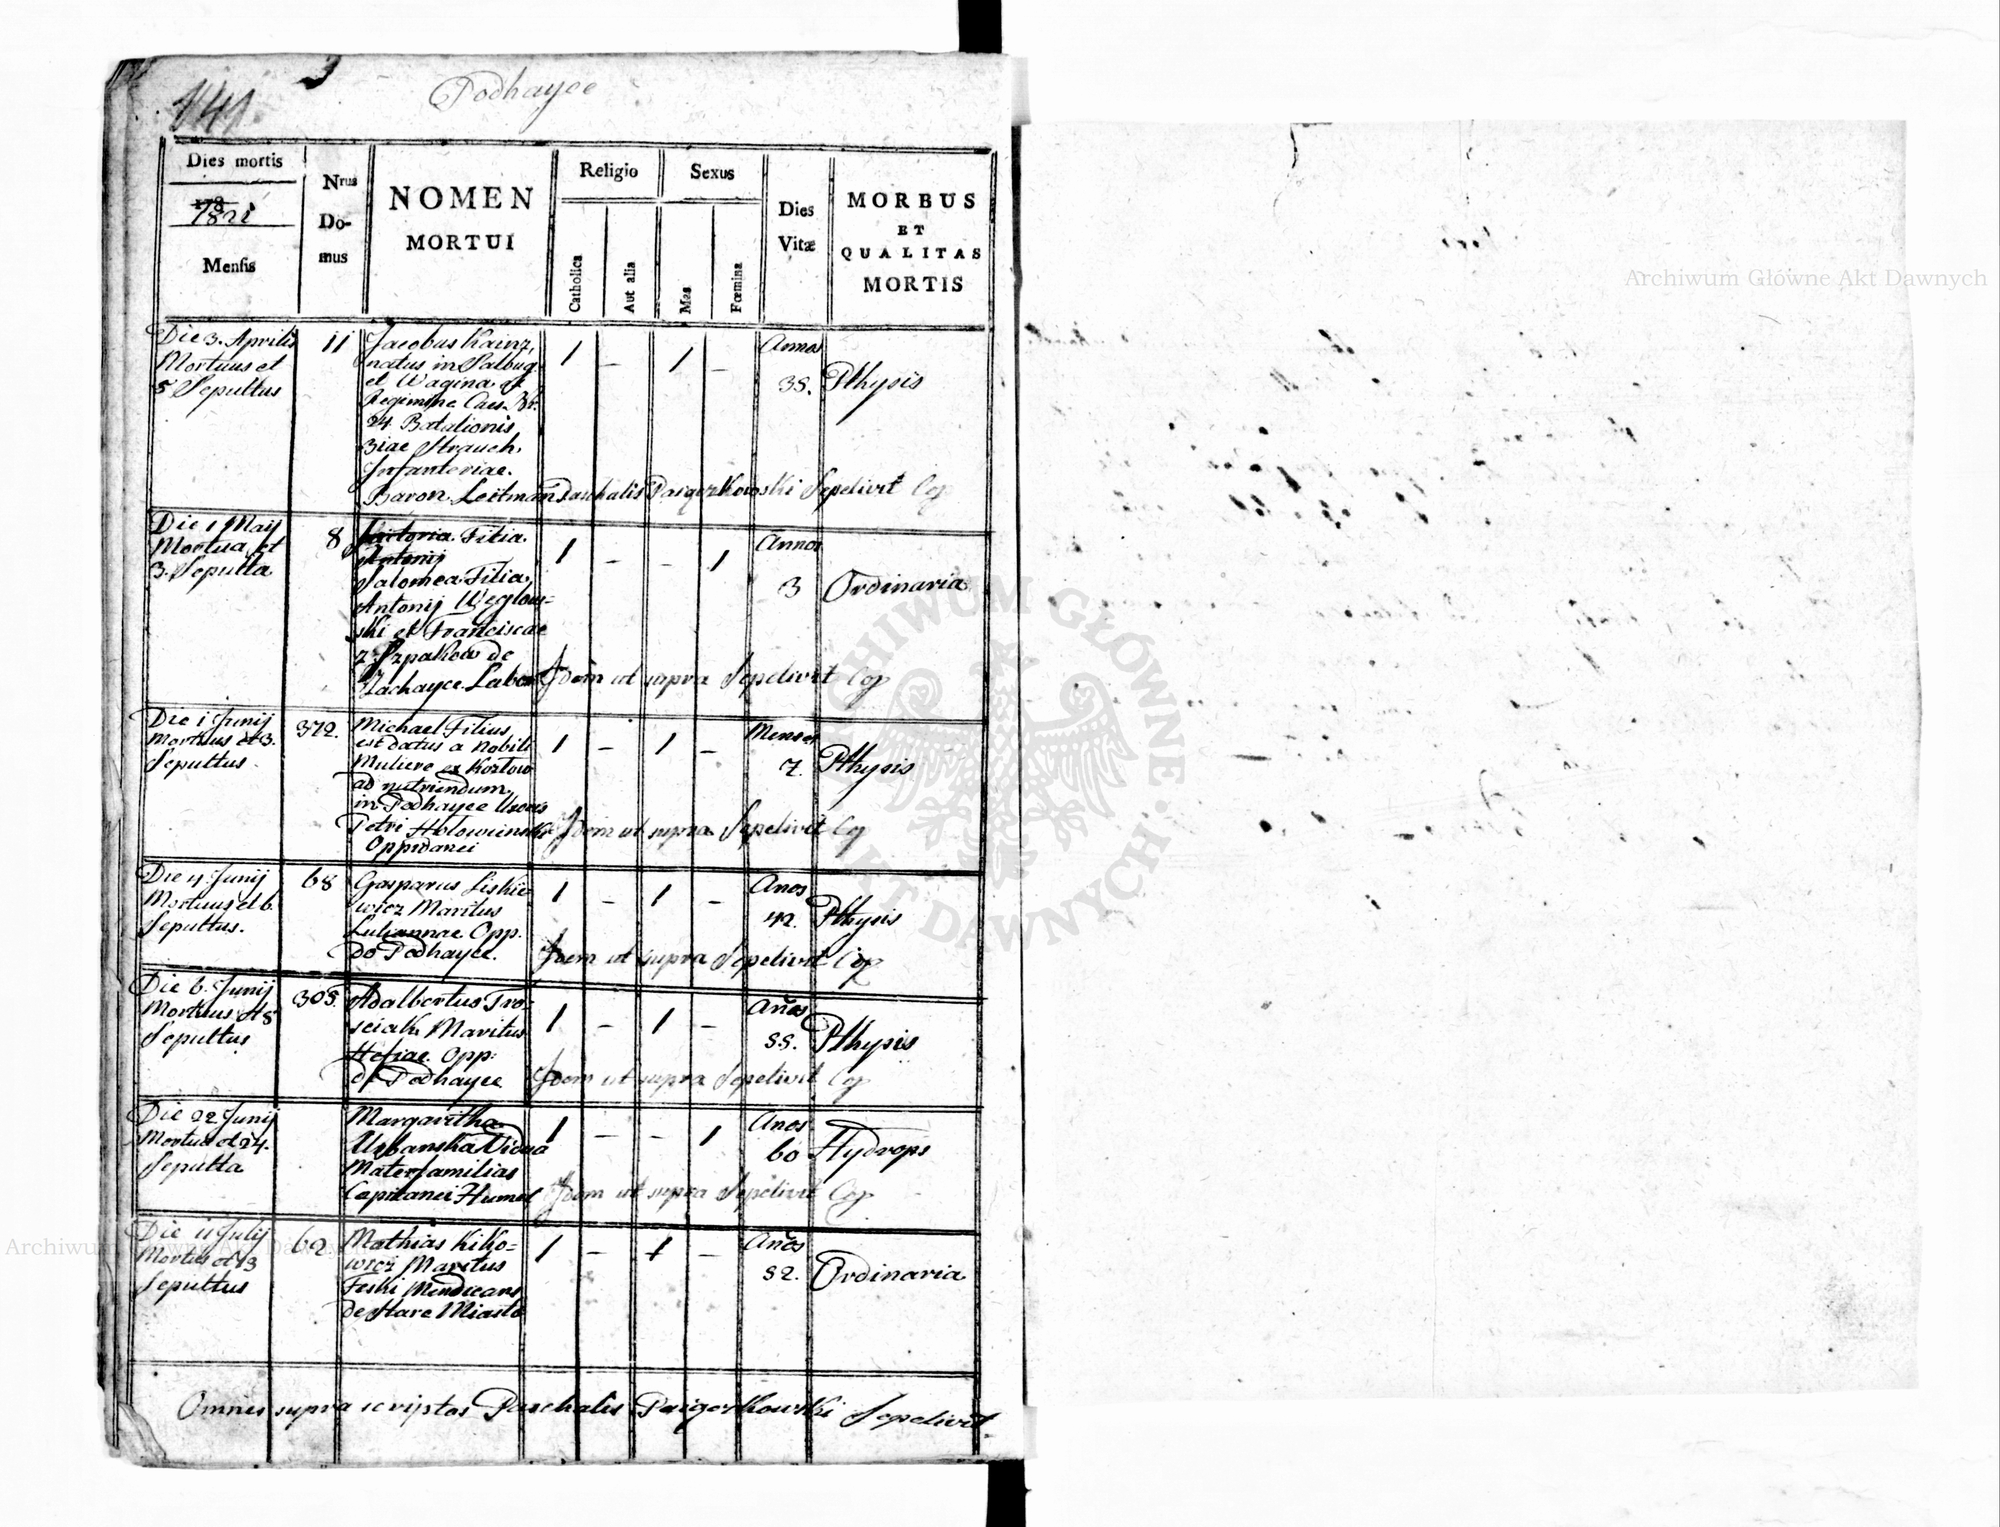 141.
3
Podhayce
Dies mortis
178
1821
Mensis
Nrus
Do-
mus
NOMEN
MORTUI
Religio
Catholica
Aut alia
Sexus
Mas
Fœmina
Dies
Vitæ
MORBUS
ET
QUALITAS
MORTIS
Die 3. Aprilis
Mortuus et
5 Sepultus
11
Jacobus Kainz,
natus in Salburg
et Wagina ex
Regimine Caes.
24 Batalionis
3iae Strauch
Infanteriae.
Baron Leitman
1 – 1 –
Annos
35.
Pthysis
Paschalis Paigerkowski Sepelivit Cop
Die 1 Maij
Mortua et
3. Sepulta
8
Victoria Filia
Antonij
Salomea Filia
Antonij Weglow-
ski et Franciscae
z Szpakow de
Zachayce Labor
1 – – 1
Annos
3
Ordinaria
Idem ut supra Sepelivit Cop
Die 1 Junij
Mortuus et 3.
Sepultus.
372.
Michael Filius
est datus a Nobili
Muliere ex Kozlow
ad nutriendum
in Podhayce Uxoris
Petri Holowinski
Oppidanei
1 – 1 –
Menses
7.
Pthysis
Idem ut supra Sepelivit Cop
Die 4 Junij
Mortuus et 6.
Sepultus.
68
Gasparus Liskie-
wicz Maritus
Juliannae Opp.
do Podhayce.
1 – 1 –
Anos
42.
Pthysis
Idem ut supra Sepelivit Cop
Die 6. Junij
Mortuus et 8
Sepultus
305.
Adalbertus Tro-
sciak Maritus
Hefiae Opp:
de Podhayce
1 – 1 –
Años
55.
Pthysis
Idem ut supra Sepelivit Cop
Die 22 Junij
Mortua et 24.
Sepulta
Margaritha
Urbanska Vidua
Materfamilias
Capitanei Humel
1 – – 1
Anos
60
Hydrops
Idem ut supra Sepelivit Cop
Die 11 Julij
Mortus et 13
Sepultus
62
Mathias Kiko-
wicz Maritus
Feski Mendicans
de Stare Miasto
1 – 1 –
Años
52.
Ordinaria
Omnes supra scriptos Paschalis Paigerkowski Sepelivit.
Archiwum Główne Akt Dawnych
ARCHIWUM GŁÓWNE · AKT DAWNYCH ·
Archiwum Główne Akt Dawnych